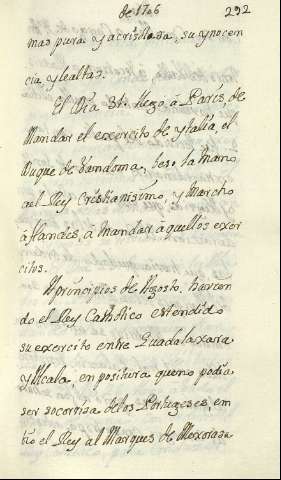 de 1706
292
mas pura y acrisolada, su ynocen
cia y lealtad.
El Dia 31. llego, à Paris, de
Mandar el exercito de ytalia, el
Duque de Vandoma, beso la mano
ael Rey Cristianisimo, y Marcho
à flandes, à mandar à quellos exer
citos.
A principios de Agosto, havien
do el Rey Catholico estendido
su exercito entre Guadalaxara
y Alcala, en positura que no podia
ser socorrida delos Portugeses, em
bio el Rey al Marques de Mexorada